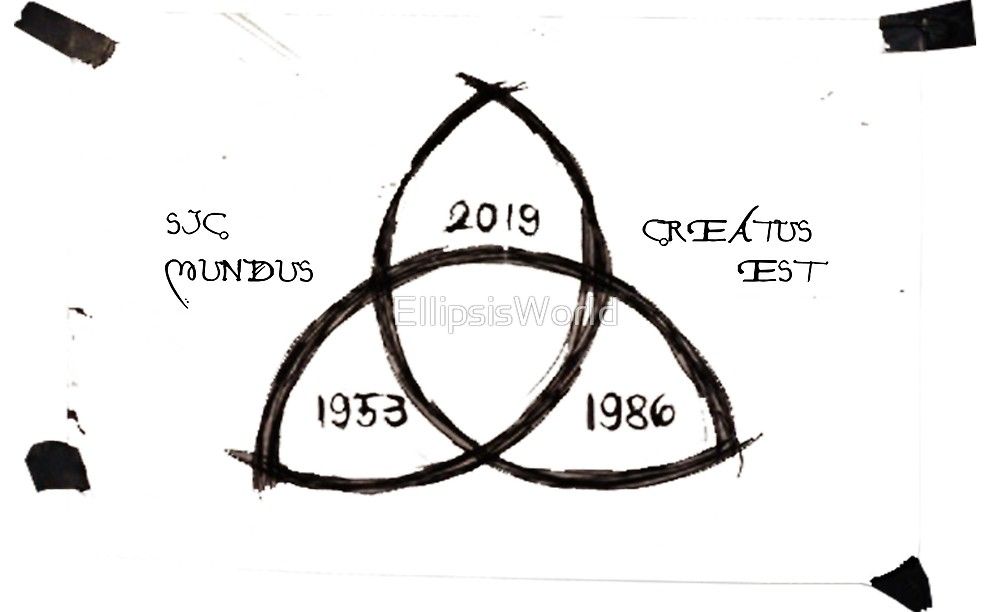 2019
SIC
MUNDUS
CREATUS
EST
EllipsisWorld
1953
1986